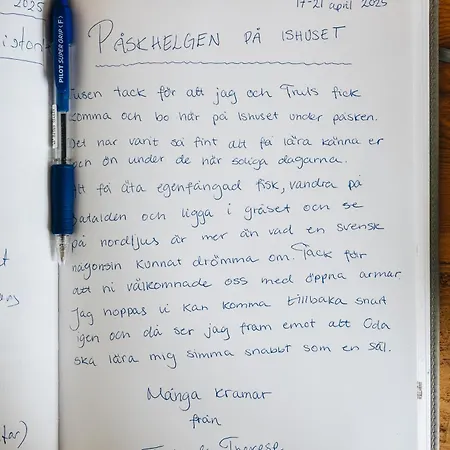 2025
17-21 april 2025
PÅSKHELGEN PÅ ISHUSET
PILOT SUPER GRIP (F)
Tusen tack för att jag och Truls fick
komma och bo här på Ishuset under påsken.
Det har varit så fint att få lära känna er
och ön under de här soliga dagarna.
Att få äta egenfångad fisk, vandra på
Batalden och ligga i gräset och se
på nordljus är mer än vad en svensk
någonsin kunnat drömma om. Tack för
att ni välkomnade oss med öppna armar.
Jag hoppas vi kan komma tillbaka snart
igen och då ser jag fram emot att Oda
ska lära mig simma snabbt som en säl.
Många kramar
från
Therese